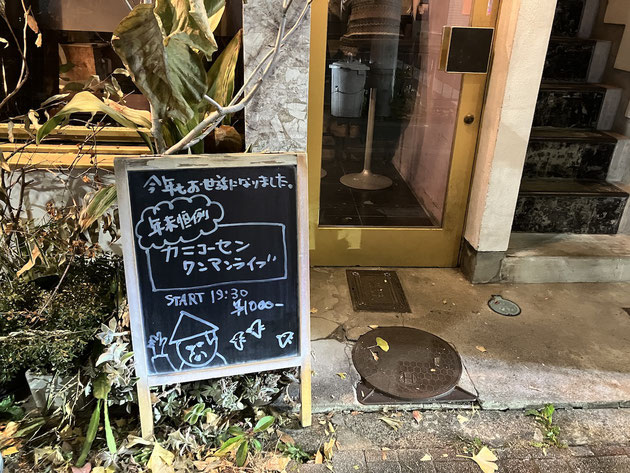 今年もお世話になりました。
年末恒例
カニコーセン
ワンマンライブ
START 19:30
¥1000-